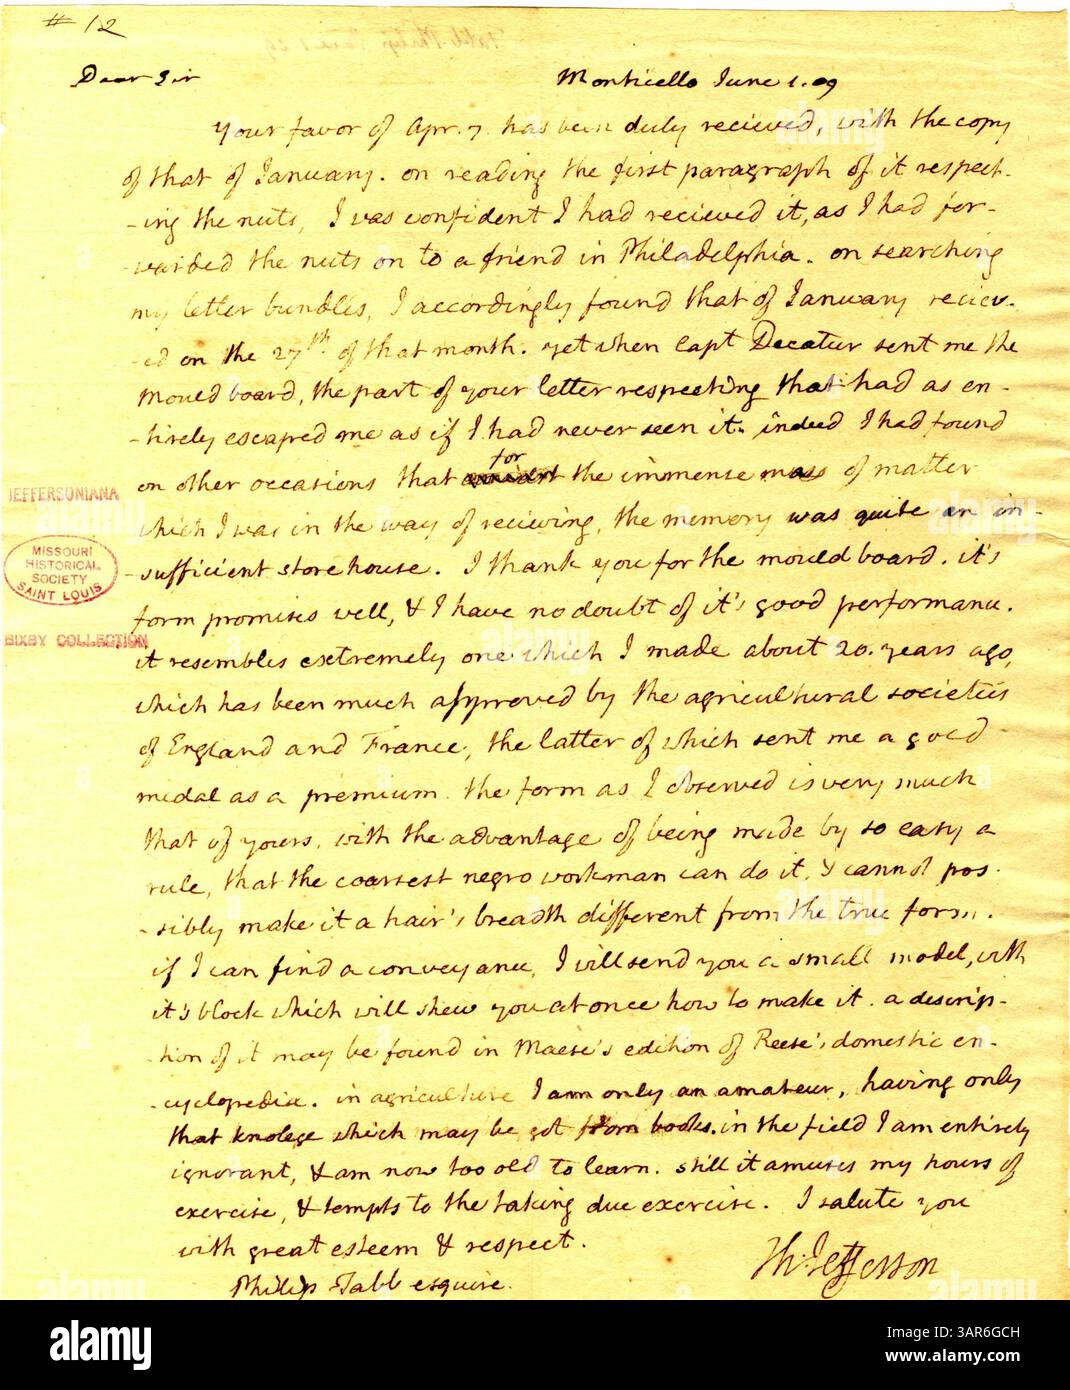 # 12
Dear Sir
Monticello June 1. 09
Your favor of Apr. 7. has been duly recieved, with the copy
of that of January. on reading the first paragraph of it respect-
-ing the nuts, I was confident I had recieved it, as I had for-
-warded the nuts on to a friend in Philadelphia. on searching
my letter bundles, I accordingly found that of January reciev-
-ed on the 27th of that month. yet when capt Decatur sent me the
mould board, the part of your letter respecting that had as en-
-tirely escaped me as if I had never seen it. indeed I had found
on other occasions that for the immense mass of matter
which I was in the way of recieving, the memory was quite an in-
-sufficient store house. I thank you for the mould board. it's
form promises well, & I have no doubt of it's good performance.
it resembles extremely one which I made about 20. years ago,
which has been much approved by the agricultural societies
of England and France, the latter of which sent me a gold
medal as a premium. the form as I observed is very much
that of yours, with the advantage of being made by so easy a
rule, that the coarsest negro workman can do it, & cannot pos-
-sibly make it a hair's breadth different from the true form.
if I can find a conveyance, I will send you a small model, with
it's block which will shew you at once how to make it. a descrip-
-tion of it may be found in Maese's edition of Reese's domestic en-
-cyclopedia. in agriculture I am only an amateur, having only
that knolege which may be got from books. in the field I am entirely
ignorant, & am now too old to learn. still it amuses my hours of
exercise, & tempts to the taking due exercise. I salute you
with great esteem & respect.
Th: Jefferson
Philip Tabb esquire.
JEFFERSONIANA
MISSOURI
HISTORICAL
SOCIETY
SAINT LOUIS
BIXBY COLLECTION
alamy
Image ID: 3AR6GCH
www.alamy.com